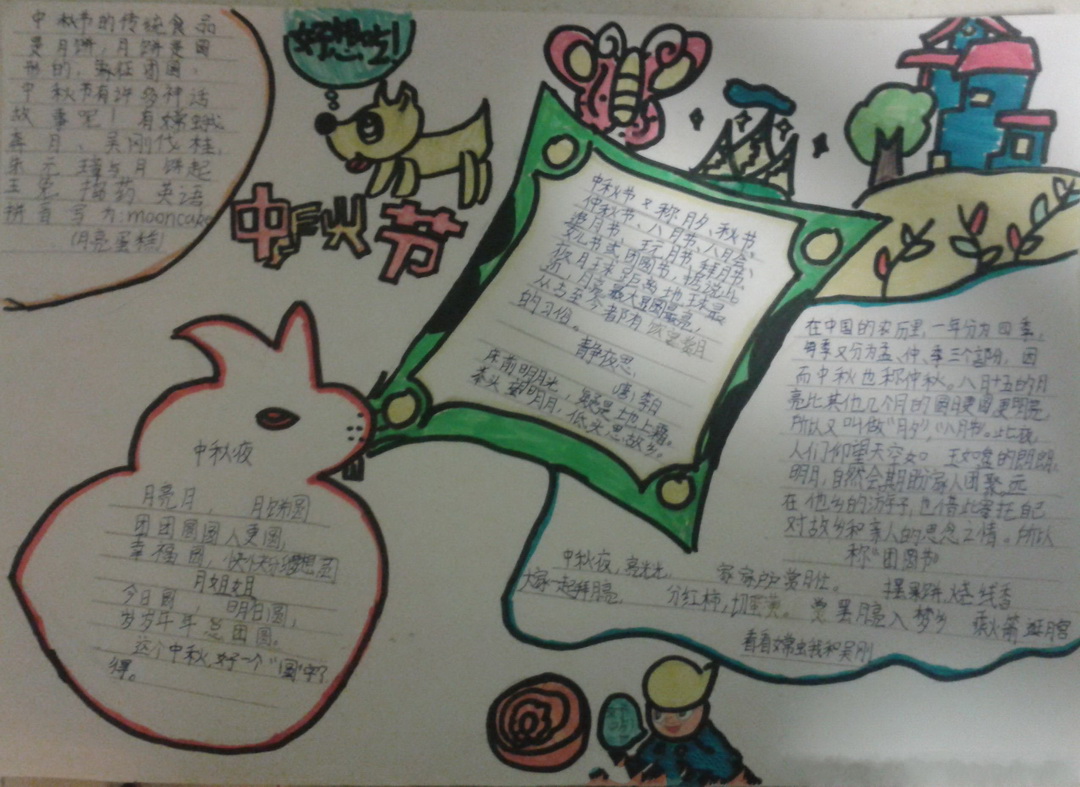 中秋节的传统食品
是月饼,月饼是圆
形的,象征团圆。
中秋节有许多神话
故事呢!有嫦娥
奔月、吴刚伐桂,
朱元璋与月饼起
玉兔捣药 英语
拼音写为:mooncake
(月亮蛋糕)
好想吃!
中秋节
中秋节又称月夕、秋节、
仲秋节、八月节、八月会、
追月节、玩月节、拜月节、
女儿节或团圆节,据说此
夜月球距离地球最
近,月亮最大最圆最亮,
从古至今都有饮宴赏月
的习俗。
静夜思
唐 李白
床前明月光,疑是地上霜。
举头望明月,低头思故乡。
在中国的农历里,一年分为四季,
每季又分为孟、仲、季三个部分,因
而中秋也称仲秋。八月十五的月
亮比其他几个月的圆月更圆更明亮,
所以又叫做“月夕”,“八月节”。此夜,
人们仰望天空如 玉如盘的朗朗
明月,自然会期盼家人团聚。远
在他乡的游子,也借此寄托自己
对故乡和亲人的思念之情。所以
称“团圆节”
中秋夜
月亮月, 月饼圆
团团圆圆人更圆,
幸福圆,
月姐姐
今日圆, 明日圆,
岁岁年年总团圆。
这个中秋,好一个“圆”字了
得。
中秋夜,亮光光, 家家户户赏月忙。 摆果饼 烧线香
大家一起拜月亮, 分红柿,切 觉 月亮入梦乡 乘火箭 逛月宫
看看嫦娥和吴刚